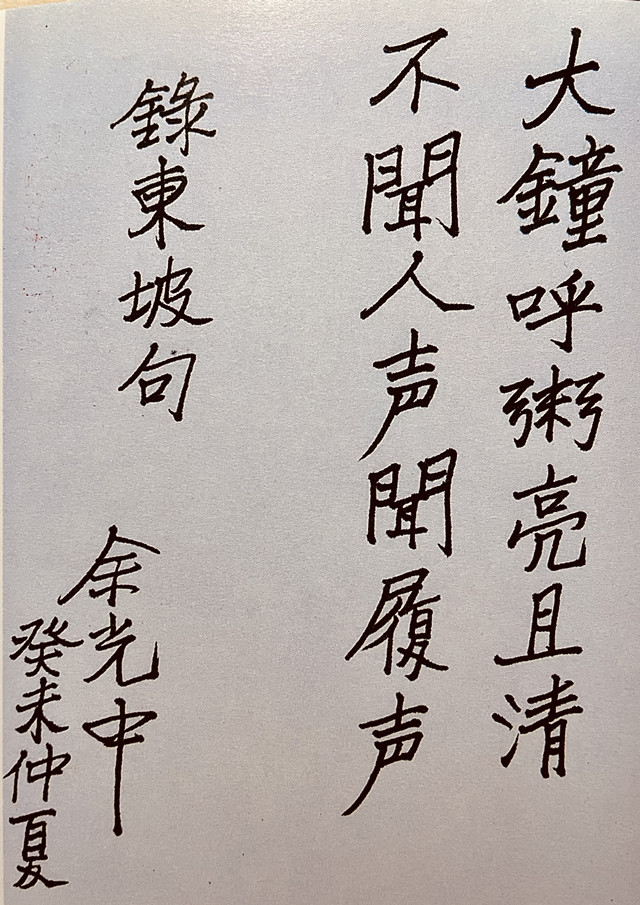 大鐘呼粥亮且清
不聞人声聞履声
錄東坡句
余光中
癸未仲夏